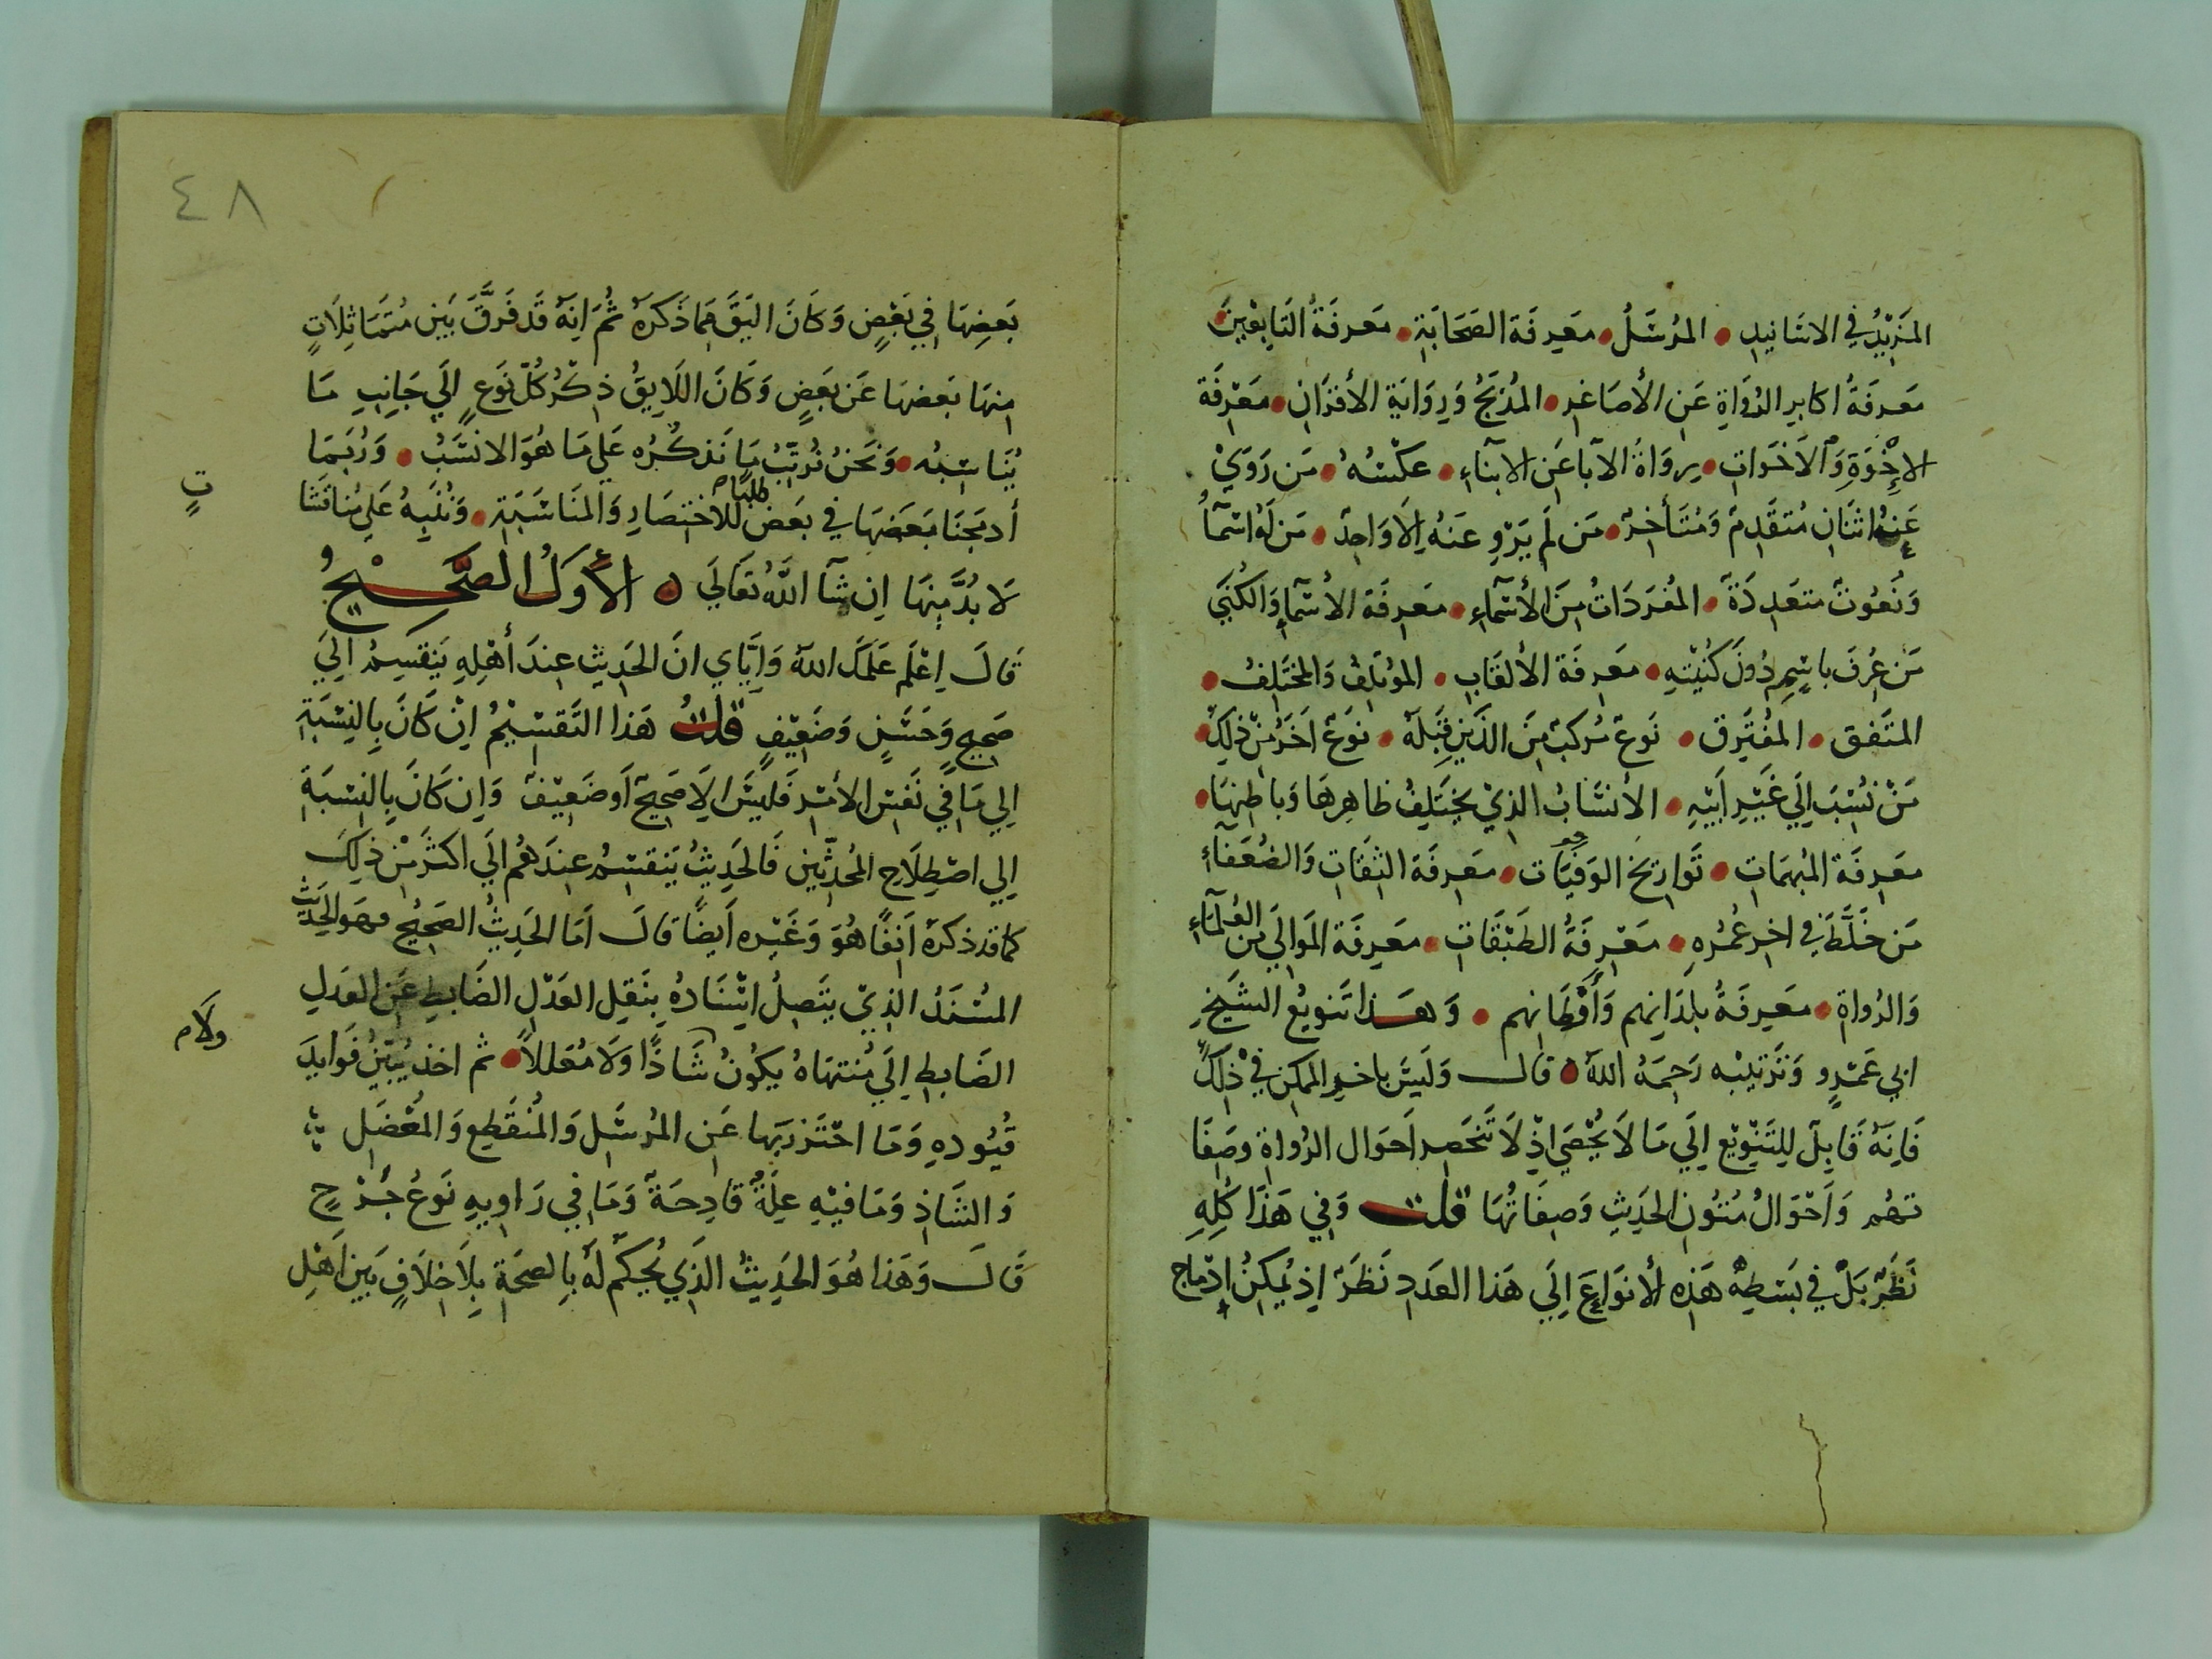 المَزِيْدُ في الاسَانيدِ • المرُسَلُ • معَرِفَة الصَحَابَةِ • مَعرفَةُ التَابِعيْنَ
مَعَرفَةُ اكابرِ الرُوَاةِ عَنِ الأصَاغرِ • المُدَبَّجُ وَرِوَايَةِ الأقرَانِ • مَعَرْفَة
الإِخْوَةِ وَالأَخَوَاتِ • رِوَاةُ الآبا عَنِ الابنَاءِ • عكْسُهُ • مَن رَوَيْ
عَنهُ اثنَانِ مُتقَدِمٌ وَمُتَأخِرٌ • مَن لَم يَرْوِ عَنهُ إِلَا وَاحِدٌ • مَن لَهُ اسْمآُ
وَنُعُوتٌ متعَدِدَةٌ • المُفرَدَاتُ مِنَ الأسْمآءِ • معَرِفَة الأسْمآءِ وَالكُنَي
مَن عُرِفَ باسْمِهِ دُونَ كُنيْتِهِ • معَرِفَة الألقَابِ • المؤتَلِفُ وَالمخْتَلِفُ •
المتَفق • المفْتَرِق • نَوعٌ مُركبٌ مِنَ الذَيِن قَبْلَهُ • نوَعٌ آخَرُ مِنْ ذلِكَ •
مَنْ نُسْبَ إلَي غَيْرِ أبَيْهِ • الأنسَابُ الذِيْ يختَلِفُ ظاهِرهَا وَبَاطِنهَا •
معَرِفَة المُبْهَمَاتِ • تَوَاريخ الوَفيَات • معَرِفَة الثِقَاتِ وَالضُعَفآءِ
مَن خَلَّطَ في اخرِ عُمُرهِ • معَرِفَةُ الطَبَقَاتِ • معَرِفَة المَوَالِي مِن العُلمَآءِ
وَالرُواةِ • معَرِفَةُ بلدَانِهم وَأَوْطَانِهم • وَهَذا تَنويْع الشَيخِ
ابي عَمْرٍو وَتَرتيْبِه رَحِمَهُ اللهُ ٥ قالَ وَليَسَ باخرِ الممكن في ذلِكَ
فَإِنَهُ قَابِلٌ لِلتَنِوْيْع إِلَي مَا لَا يُحْصَي اذْ لَا تَنْحَصر اَحوَال الرُواةِ وصَفَا
تهُم وَاَحْوَالُ مُتُونِ الحَدِيثِ وَصِفَاتُهَا قلت وَفي هَذَا كُلِهِ
نَظَرٌ بَلْ في بَسْطِهِ هَذِه الأنوَاعَ إِلَي هَذا العَدَدِ نَظَرٌ اِذ يُمكِنُ اِدْمَاج
٤٨
بَعضِهَا فِي بَعْضٍ وَكَانَ اليَقَ مِمَا ذَكَرهُ ثُمَ انِهُ قَد فَرَّقَ بَيَن مُتمَاثِلَاتٍ
مِنهَا بَعضهَا عَن بَعَضٍ وَكَانَ اللَايِقُ ذِكْرُ كُلّ نَوَعٍ إلَي جَانِبِ مَا
يُنَاسِبُه • وَنَحَنُ نُرتِّبُ مَا نَذكُرُه عَلي مَا هُوَ الانسَبُ • وَرُبَمَا
أدَمجنَا بَعَضهَا في بعَض طلبًا للاختصَارِ وَالمنَاسَبَةِ • وَنُنَبِهُ عَلي مُناقشَا
تٍ
لَا بُدَّ مِنهَا اِن شآ اللَّهُ تَعَالَي ٥ الأَوَلُ الصَّحَيْحُ
قَالَ اِعْلَم عَلمَكَ اللهُ وَإيَّاي انَ الحَدِيثِ عِندَ أَهْلِهِ يَنقَسِمُ إلَيَ
صَحِيحٍ وَحَسَنٍ وَضَعِيْفٍ قلت هَذا التَقسْيْمُ اِنْ كَانَ بِالنِسْبَةِ
إلي مَا فِي نَفسَ الأَمْرِ فَليسَ إلَا صَحِيحٌ اَو ضَعِيْفٌ وَاِن كَانَ بِالنِسْبَةِ
إلي اصْطِلَاحِ المحُدّثِين فَالحَدِيثُ يَنقسِمُ عِندَهُم إلَي اكثَرَ مِنْ ذلِكَ
كما قد ذكرهُ آنفًا هُوَ وَغَيْرِه اَيضًا قالَ اَمَا الحَدِيثُ الصَحِيْحُ فهَو الحَدِيثُ
المسُنَدُ الذِيْ يتَصِلُ اِسْنَادُهُ بِنَقِلِ العَدْلِ الضَابطِ عَنِ العَدلِ
الضَابطِ إلَي مُنتهَاهُ يكُونُ شَاذًا وَلَا مُعَللًا • ثم اخذ يُبَيِّنُ فَوَايِدَ
ولَام
قيُودهِ وَمَا احْتَرَز بَهِا عَنِ المرُسَلِ وَالمُنقَطِع وَالمُعْضَلِ
وَالشَاذِ وَمَا فيْهِ عِلةٌ قَادِحَةٌ وَمَا فِي رَاويهِ نَوعُ جُرْحٍ
قَالَ وَهَذا هُوَ الحَدِيثُ الذَي يُحكَم لَهُ بِالصحَةِ بِلَا خِلَافٍ بَينَ اَهَلِ